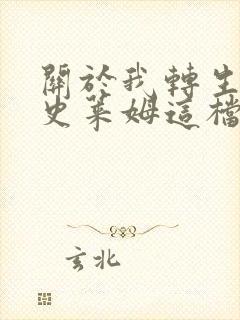 關於我轉生
史萊姆這檔
玄北